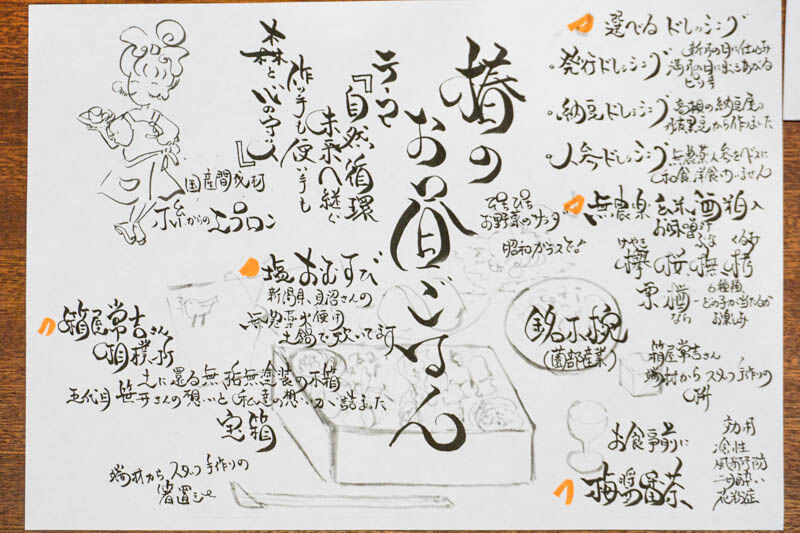 椿の
お昼ごはん
テーマ
『自然循環
未来へ継ぐ
作り手も使い手も
森と心の守り』
国産間伐材
木糸からのエプロン
選べるドレッシング
新月の日に仕込み
満月の日に出来あがる
ヒシオ
発行ドレッシング
納豆ドレッシング
人参ドレッシング
無農薬人参をベースに
和食洋食問いません
無農薬玄米酒粕入
お味噌汁
けやき ぶな くるみ
欅 桜 橅 胡桃
栗 楢
なら
6種類
どの子が当たるか
お楽しみ
ぴちぴち
お野菜のサラダ
昭和ガラスで。
塩おむすび
新潟県
無農薬米使用
土鍋で炊いてます
銘木椀
(薗部産業)
箱屋常吉さん
相模原
土に還る無垢無塗装の木箱
五代目
さんの想いと私達の想いが詰まった
宝箱
端材からスタッフ手作りの
箸置き
箱屋常吉さん
端材からスタッフ手作りの
お食事前に
梅醤番茶
効用
冷性
風邪予防
二日酔い
花粉症